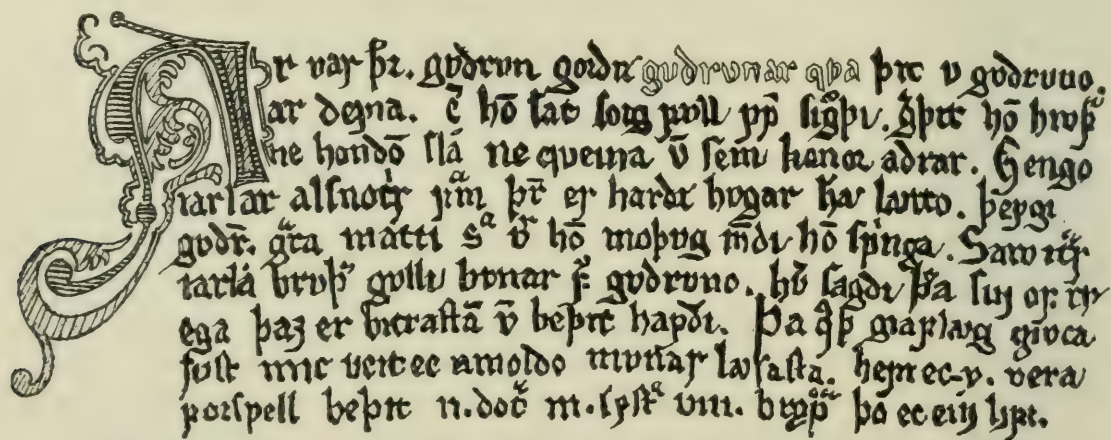 Ar var þz. gvdrvn gordiz gvdrvnar qva þit v gvdruno.
ar deyia. ē hō sat sorg full yf̄ sigͦþi. gͦþit hō hivfͣ
ne hondō slá ne queina v̄ sem konor adrar. Gengo
iarlar alsnotir fͣm þr̄ er hardz hvgar ha lautto. þeygi
gvdr̄. gͣta matti sͣ v̄ hō moþvg m̄di hō springa. Sato itͣr
iarlá brvþͥ gulli bvnar f̄ gvdruno. hv̄ sagdi þͣa sin of tr
ega þaz er bitrastā v̄ beþit hafdi. Þa qͦþ giaflaug givca
syst mic veit ec amoldo munar lausasta. hefi ec .v. vera
forspell beþit .ii. dotͣ .iii. systͣ .viii. brǫþͣ þo ec ein lifi.